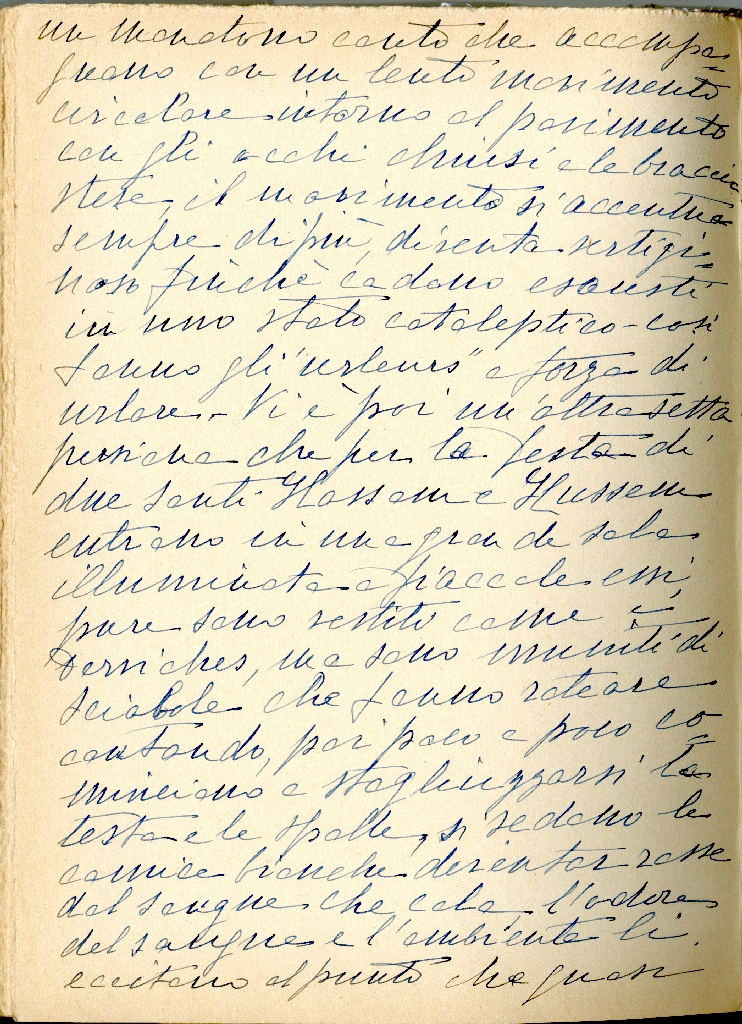 un monotono canto che accompa=
gnano con un lento movimento
circolare intorno al pavimento
con gli occhi chiusi e le braccia
stese, il movimento si accentua
sempre di più, diventa vertigi=
noso finchè cadono esausti
in uno stato cataleptico - così
fanno gli "urleurs" a forza di
urlare. - Vi è poi un'altra setta
persiana che per la festa di
due santi Hassam e Hussem
entrano in una grande sala
illuminata a fiaccole essi
pure sono vestiti come i
derviches, ma sono muniti di
sciabole che fanno roteare
cantando, poi poco a poco co=
minciano a stagliuzzarsi la
testa e le spalle, si vedono le
camice bianche diventar rosse
dal sangue che cola, l'odore
del sangue e l'ambiente li
eccitano al punto che quasi